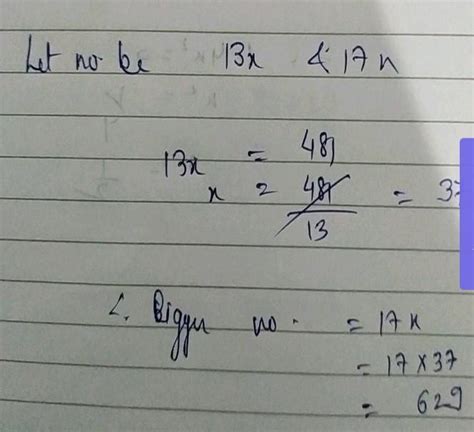 Let no. be 13x & 17x
13x = 481
x = 481/13 = 37
∴ Bigger no. = 17x
= 17 × 37
= 629